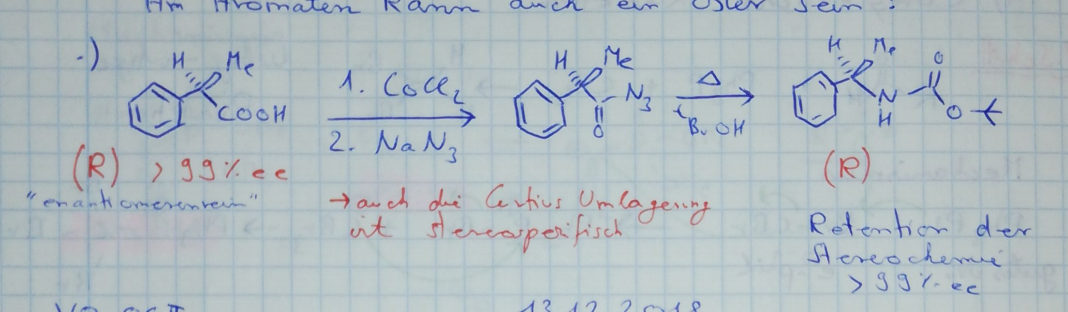 Am Aromaten kann auch ein Ester sein!
·)
H Me
COOH
1. CoCl2
2. NaN3
H Me
N3
O
Δ
tBuOH
H Me
O
N
H
O
(R) > 99% ee
(R)
"enantiomerenrein"
→ auch die Curtius Umlagerung
ist stereospezifisch
Retention der
Stereochemie
> 99% ee
13.12.2018